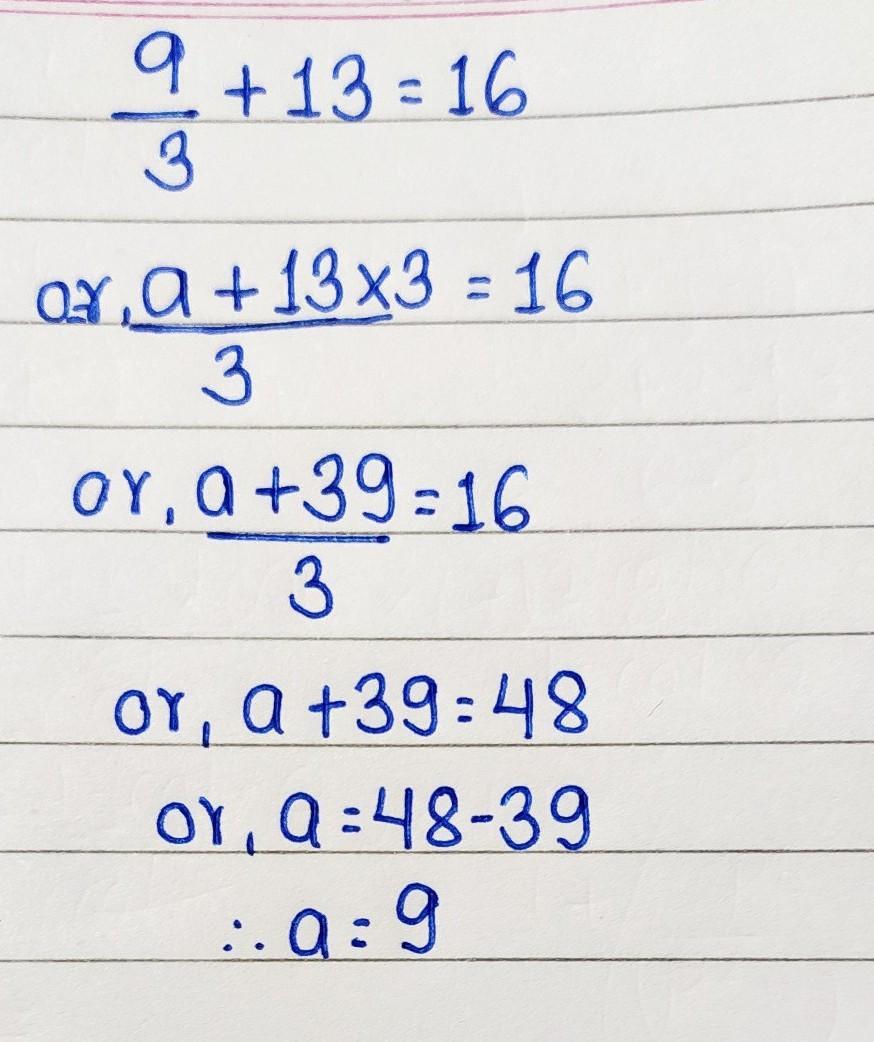 9/3 + 13 = 16
or, a + 13 x 3 / 3 = 16
or, a + 39 / 3 = 16
or, a + 39 = 48
or, a = 48 - 39
∴ a = 9